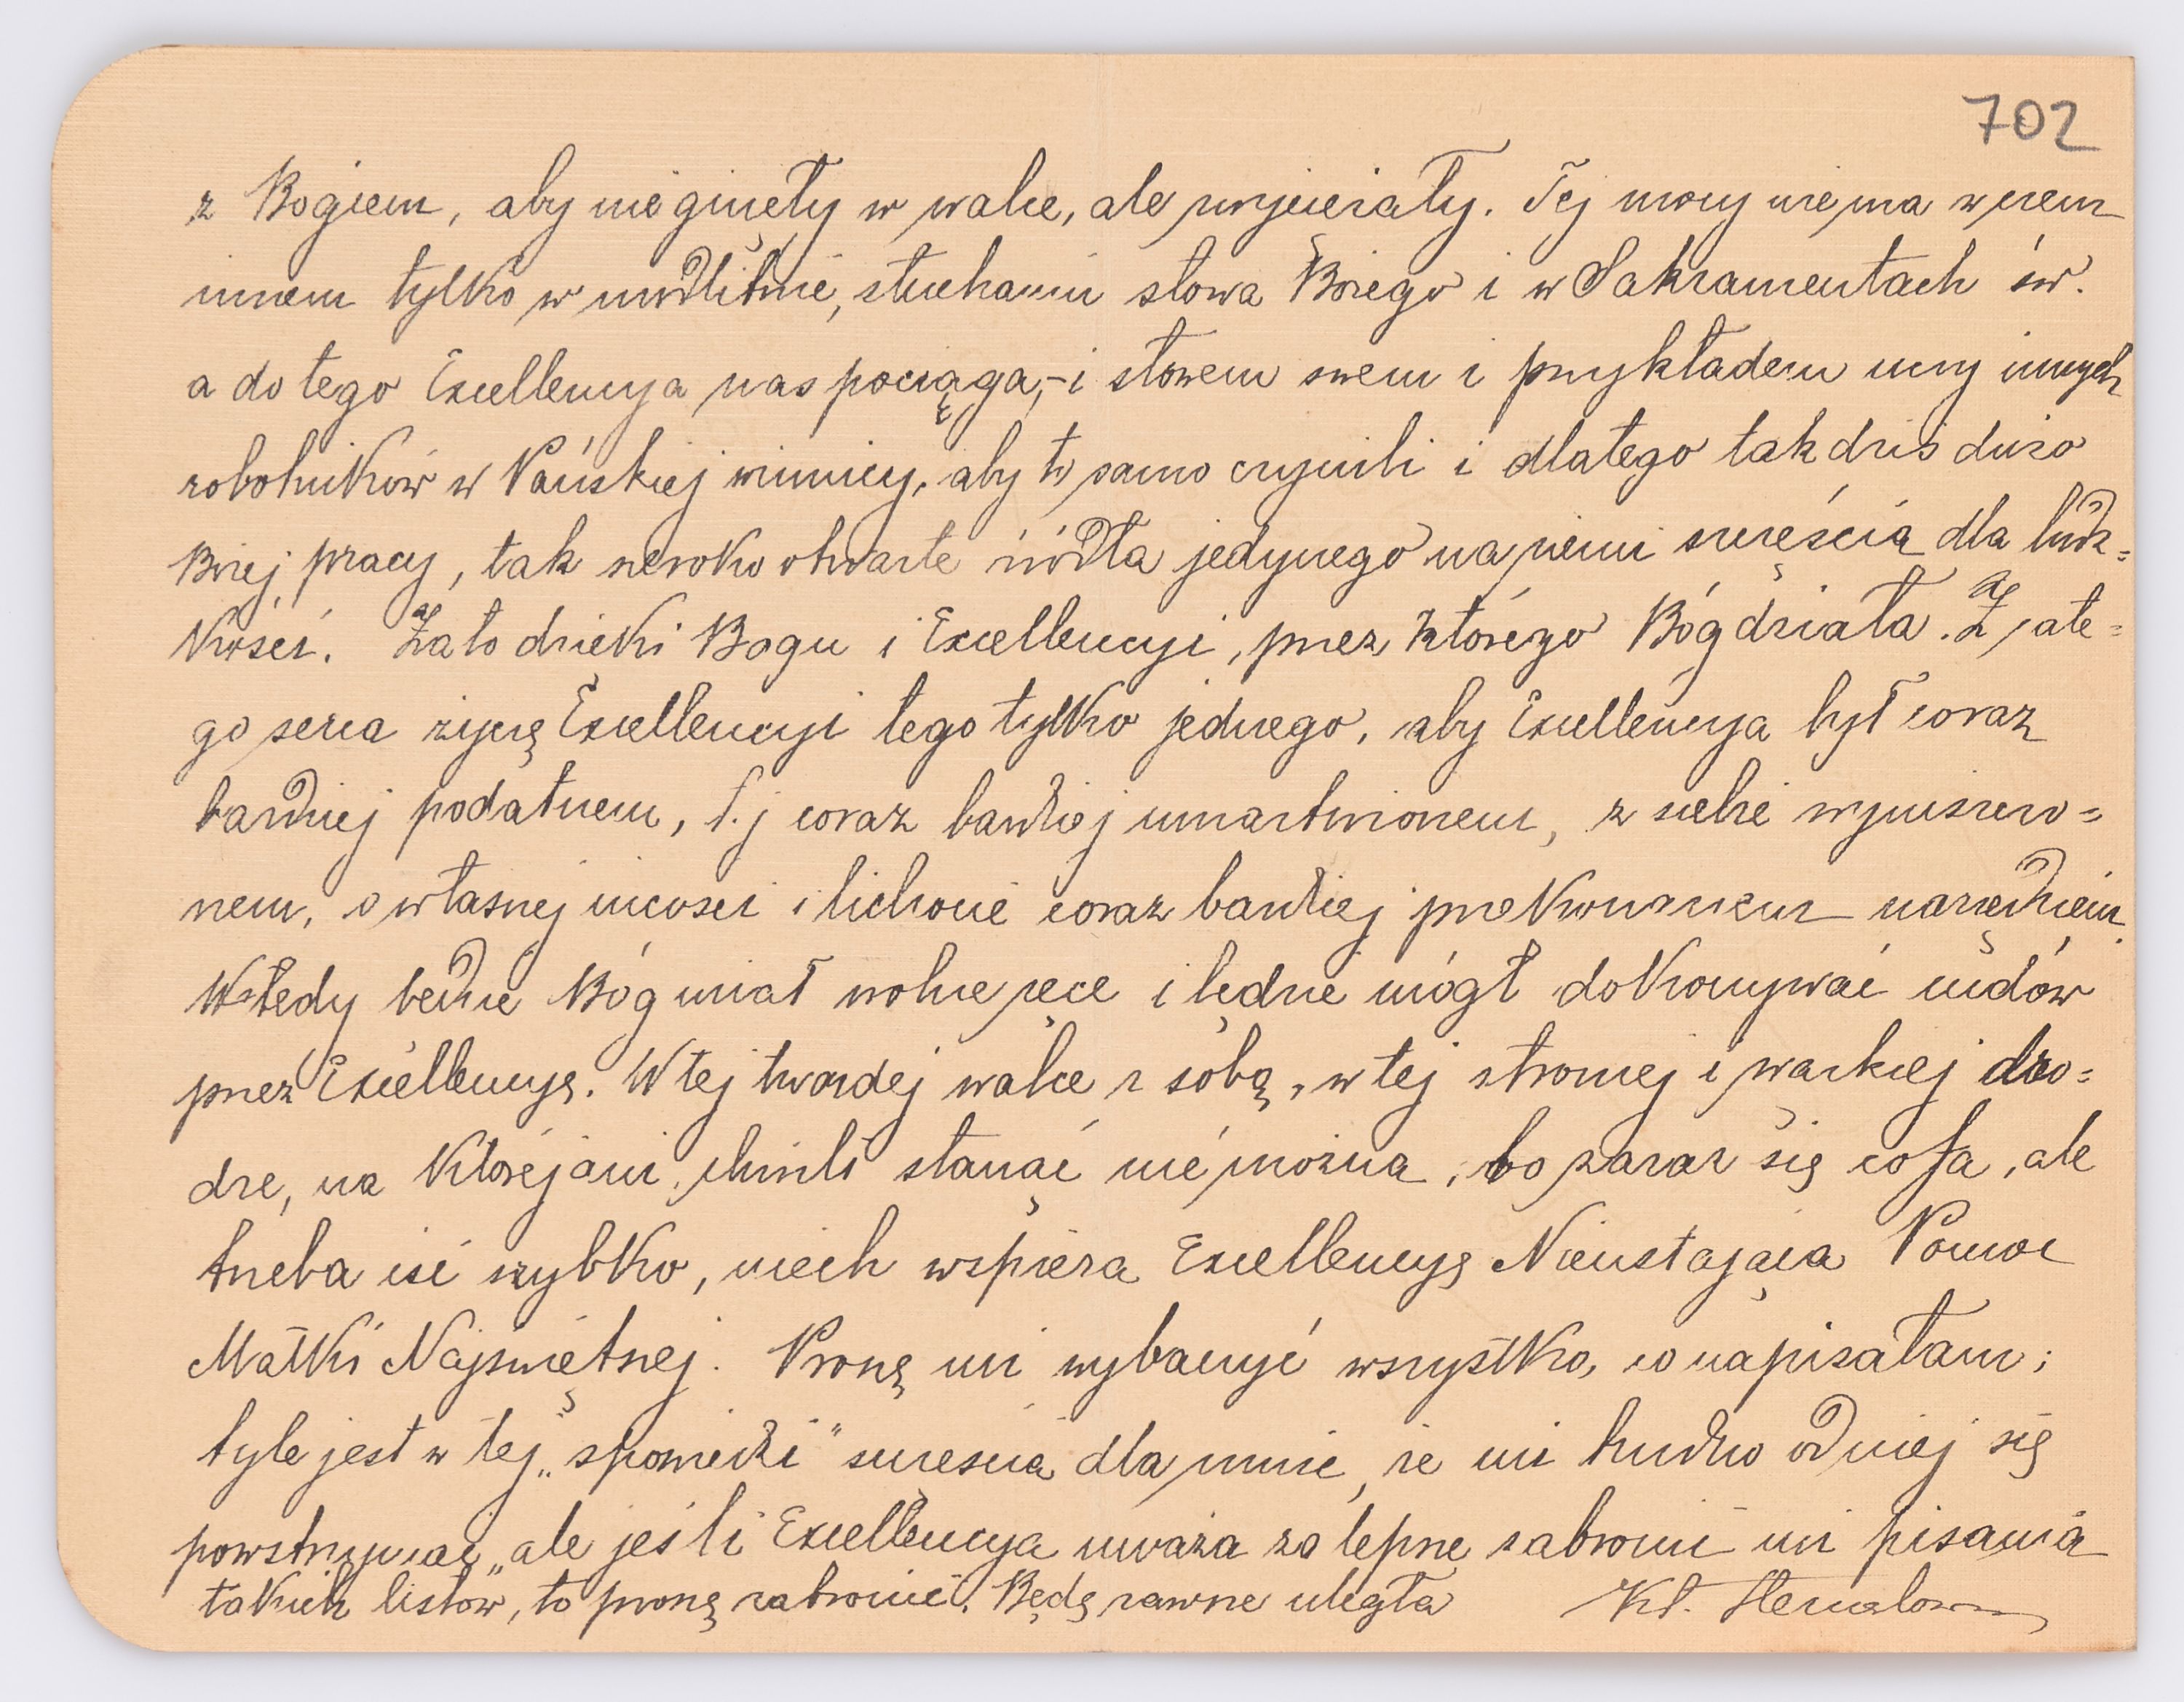 702
z Bogiem, aby nie ginęły w walce, ale zwyciężały. Tej mocy niema w czem
innem tylko w modlitwie, słuchaniu słowa Bożego i w Sakramentach św.
a do tego Excellencya nas pociąga,-i słowem swem i przykładem uczy innych
robotników w Pańskiej winnicy, aby to samo czynili i dlatego tak dziś dużo
Bożej pracy, tak szeroko otwarte źródła jedynego na ziemi szczęścia dla ludz=
kości. Za to dzięki Bogu i Excellencyi, przez którego Bóg działa. Z całe=
go serca życzę Excellencyi tego tylko jednego, aby Excellencya był coraz
bardziej podatnem, t.j coraz bardziej umartwionem, z siebie wyniszczo=
nem, o własnej nicości i lichocie coraz bardziej przekonanem narzędziem.
Wtedy będzie Bóg miał wolne ręce i będzie mógł dokonywać cudów
przez Excellencyę. W tej twardej walce z sobą, w tej stromej i wązkiej dro=
dze, na której ani chwili stanąć nie można, bo zaraz się cofa, ale
trzeba iść szybko, niech wspiera Excellencyę Nieustająca Pomoc
Matki Najświętszej. Proszę mi wybaczyć wszystko, co napisałam;
tyle jest w tej „spowiedzi" szczęścia dla mnie, że mi trudno od niej się
powstrzymać, ale jeśli Excellencya uważa za lepsze zabronić mi pisania
takich listów, to proszę zabronić. Będę zawsze uległa
Kl.